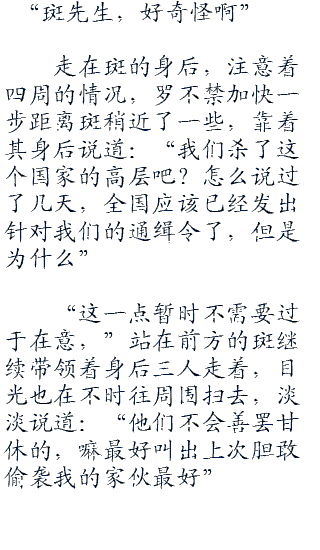 “斑先生，好奇怪啊”
走在斑的身后，注意着
四周的情况，罗不禁加快一
步距离斑稍近了一些，靠着
其身后说道：“我们杀了这
个国家的高层吧？怎么说过
了几天，全国应该已经发出
针对我们的通缉令了，但是
为什么”
“这一点暂时不需要过
于在意，”站在前方的斑继
续带领着身后三人走着，目
光也在不时往周围扫去，淡
淡说道：“他们不会善罢甘
休的，嘛最好叫出上次胆敢
偷袭我的家伙最好”